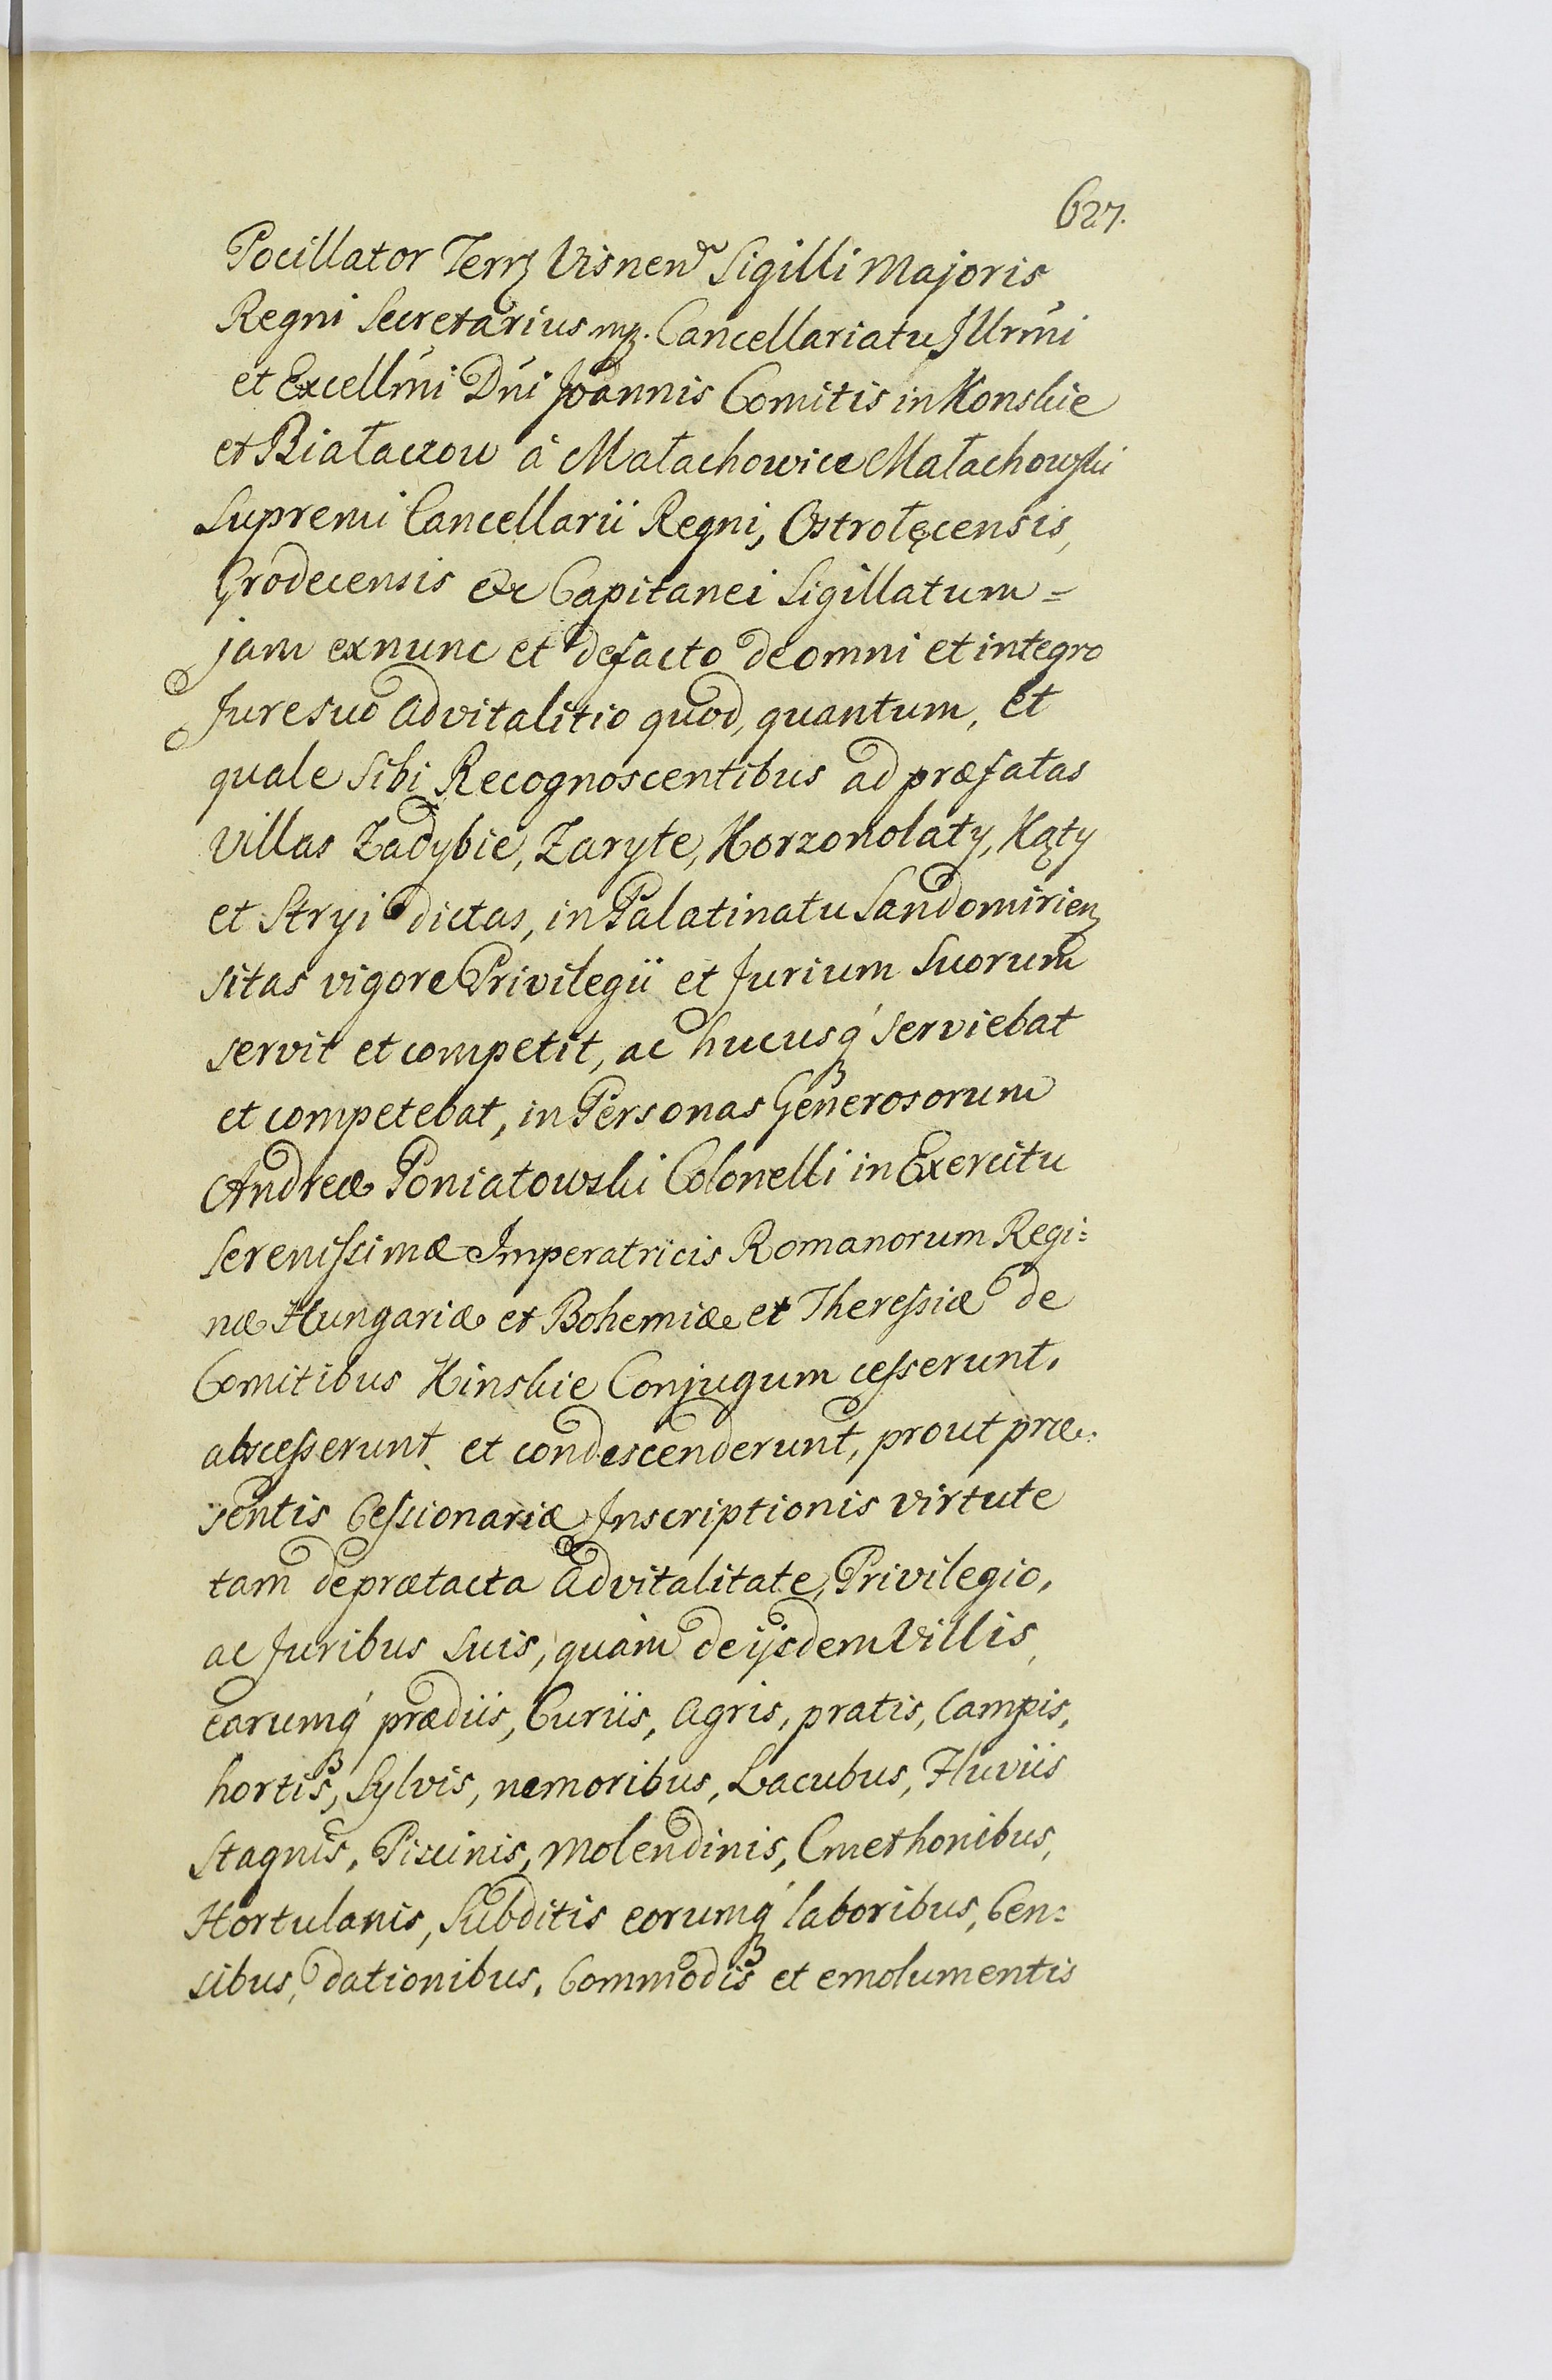 627.
Pocillator Terrꝫ Visnenꝰ Sigilli Majoris
Regni Secretarius mꝓ. Cancellariatu Illrmi
et Excellmi Dni Joannis Comitis in Konskie
et Białaczow à Małachowice Małachowski
Supremi Cancellarii Regni, Ostrołęcensis,
Grodecensis &c Capitanei Sigillatum =
jam exnunc et defacto de omni et integro
Jure suo advitalitio quod, quantum, et
quale sibi Recognoscentibus ad præfatas
Villas Zadybie, Zaryte, Korzonolaty, Kąty
et Stryi dictas, in Palatinatu Sandomirienꝫ
sitas vigore Privilegii et Jurium Suorum
servit et competit, ac hucusq́ꝫ serviebat
et competebat, in Personas Generosorum
Andreæ Poniatowski Colonelli in Exercitu
Serenissimæ Imperatricis Romanorum Regi=
næ Hungariæ et Bohemiæ et Theressiæ de
Comitibus Kinskie Conjugum cesserunt,
abscesserunt et condescenderunt, prout præ=
sentis Cessionariæ Inscriptionis virtute
tam de prætacta advitalitate, Privilegio,
ac Juribus Suis, quàm de ijsdem Villis,
earumq́ꝫ prædiis, Curiis, agris, pratis, Campis,
hortis, Sylvis, nemoribus, Lacubus, Fluviis
Stagnis, Piscinis, Molendinis, Cmethonibus,
Hortulanis, Subditis eorumq́ꝫ laboribus, Cen=
sibus, dationibus, Commodis et emolumentis